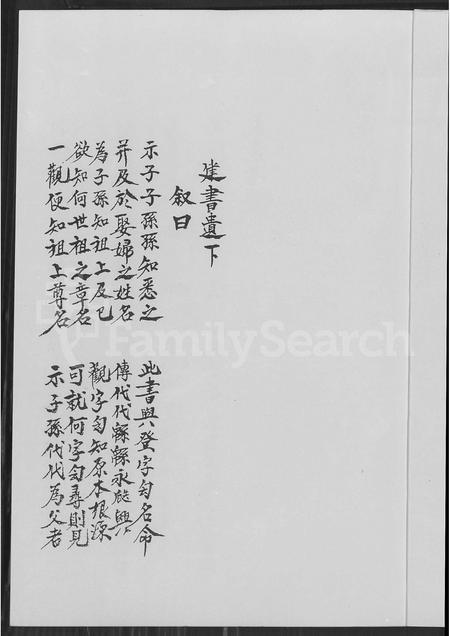 建書遺下
叙曰
示子子孫孫知悉之
此書與登字勻名命
并及於娶婦之姓名
傳代代綿綿永啟興
為子孫知祖上及已
觀字勻知原本根源
欲知何世祖之章名
可就何字勻尋則見
一觀便知祖上尊名
示子孫代代為父者
FamilySearch